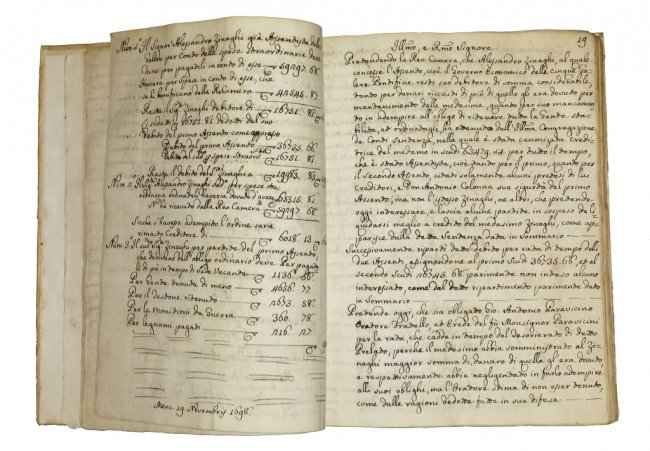 Num. 4. Il Signor Alessandro Zinaghi già Assentista delle
Galere, per Conto delle spese straordinarie deve
dare per pagatoli in conto di esse 59797. 68.
Havere per Spese in conto di esse, cioè
da bonificano dalla Rev. Camera 42545. 87.
Resta il Sig. Zinaghi debitore di 16751. 81
Li sudetti 16751. 81 dedotti dal suo
Debito del primo Assento come appresso
Debito del primo Assento 36735. 66.
Debito al Spese Straord. 16751. 81
Resta il Debito del Zinaghi a 19983. 85
Num. Il Sig. Alessandro Zinaghi sud. per spese stra
ordinarie ordinate dell' haveria dovuto d'avere 65315. 81
N'ha ricevuto dalla Rev. Camera 59297. 68
Sicchè s'havesse adempito l'ordine saria
rimasto Creditore di 6018. 13.
Num. Il sud. Sig. Zinaghi per partite del primo Assento,
che derivano dall' obligo ordinario deve. Per pagato
li di più in tempo di Sede Vacante 1136. 66.
Per Gente tenuta di meno 4656. 77
Per il Bestone ritenuto 2673. 58.
Per le monitioni da Guerra 360. 78.
Per legnami pagati 216. 27
Merc. 19. Novembris 1698.
19
Illmo, e Rmo Signore
Pretendendo la Rev. Camera, che Alessandro Zinaghi, al quale
concesse l'Assento, cioè il Governo Economico delle cinque Ga
lere Pontificie, resti suo debitore di somma considerabile
tanto per denari ricevuti di più di quello gli era dovuto per
mantenimento delle medesime, quanto per suo mancamen
to in adempire all' obligo di ritenere tutta la Gente sta
bilita, et ordinatagli, ha ottenuto dall' Illma Congregazione
de Conti Sentenza, nella quale è stata canonizata credi
trice del medemo in scudi 65479. 54 per tutto il tempo
che è stato Assentista, cioè tanto per il primo, quanto per
il Secondo Assento, citati solamente alcuni pretesi di lui
Creditori, e Don Antonio Colonna sua sigurtà del primo
Assento, ma non l'istesso Zinaghi, nè altri, che pretende
oggi interessare, e lascia alcune partite in sospeso da li
quidarsi meglio a credito del medesimo Zinaghi, come ap
parisce dalla detta Sentenza data in Sommario
Successivamente riparti detto debito per rata di tempo delli
due Assenti, assignandone al primo Scudi 36735. 66, et al
secondo Scudi 28743. 88. parimente non inteso alcuno
interessato come dal detto ripartimento parimente dato
in Sommario
Pretende oggi, che sia obligato Gio. Antonio Paravicino
Oratore fratello, et Erede del fù Monsignor Paravicini
per la rata, che cadde in tempo del Tesorierato di detto
Prelato, perche il medesimo abbia somministrato al Zi
naghi maggior somma di danaro di quella gl' era dovuta,
e respettivamente abbia negligentato in farlo adempire
alli suoi oblighi, ma l'Oratore stima di non esser tenuto,
come dalle ragioni dedotte fatte in sua difesa